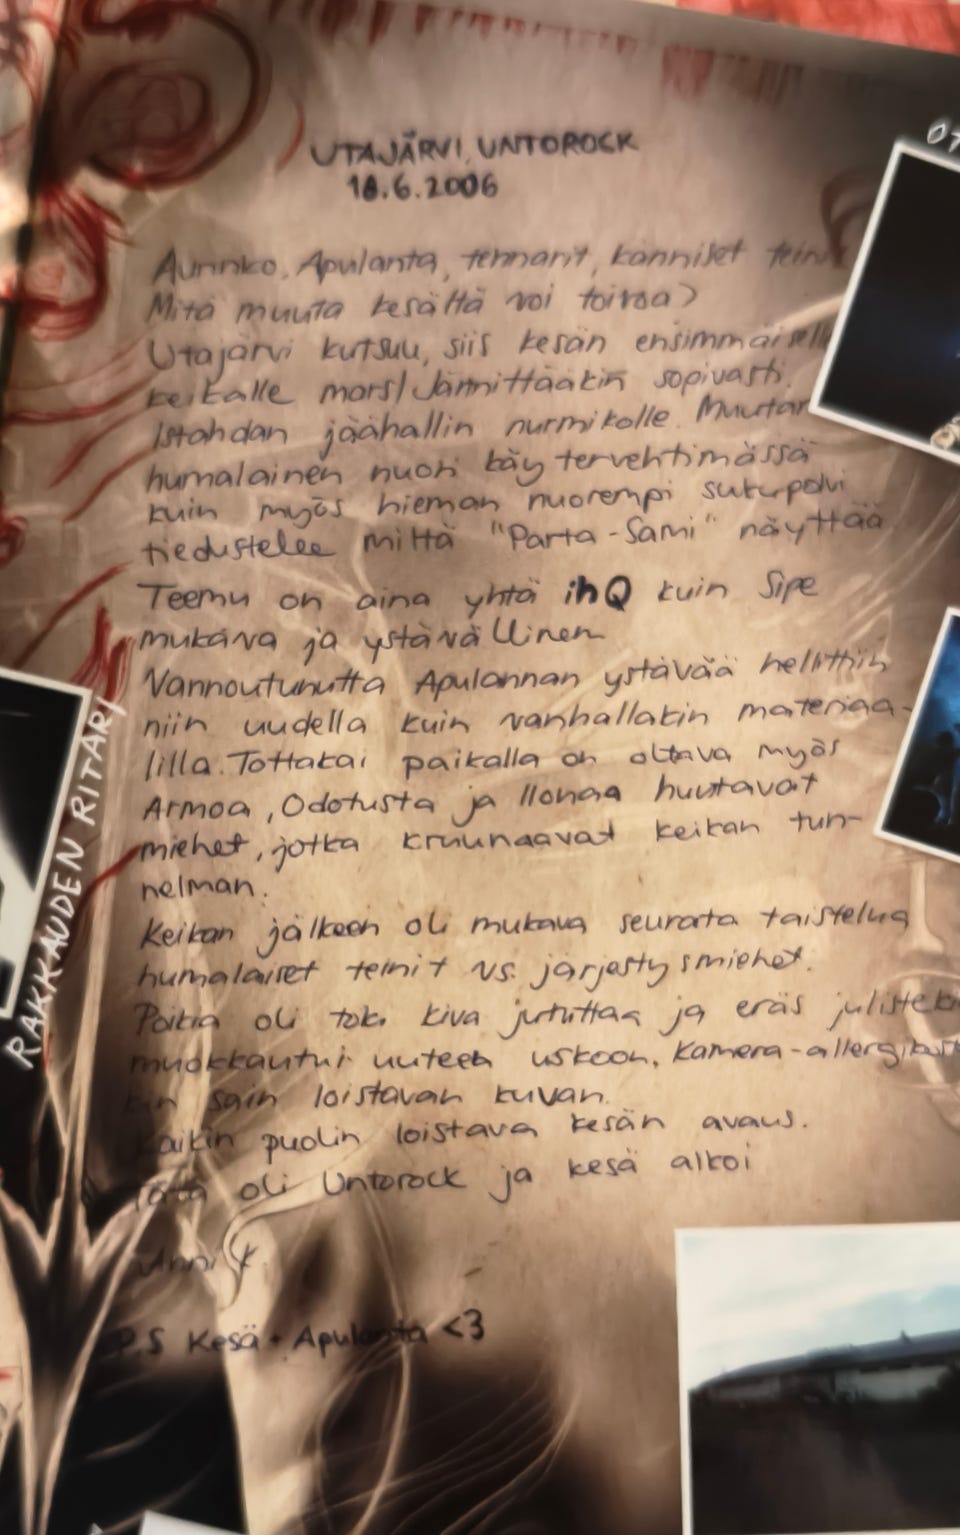 UTAJÄRVI, UNTOROCK
18.6.2006
Aurinko, Apulanta, tennarit, känniset
Mitä muuta kesältä voi toivoa?
Utajärvi kutsuu, siis kesän
keikalle mars! Jännittääkin sopivasti.
Istahdan jäähallin nurmikolle. Muutan
humalainen nuori käy tervehtimässä
kuin myös hieman nuorempi sukupolvi
tiedustelee miltä "Parta-Sami" näyttää
Teemu on aina yhtä ihQ kuin Sipe
mukava ja ystävällinen
Vannoutunutta Apulannan ystävää hellittiin
niin uudella kuin vanhallakin materiaa-
lilla. Tottakai paikalla on oltava myös
Armoa, Odotusta ja Ilonaa huutavat
miehet, jotka kruunaavat keikan tun-
nelman.
Keikan jälkeen oli mukava seurata taistelua
humalaiset teinit vs. järjestysmiehet.
Poikia oli toki kiva jututtaa ja eräs
muokkautui uuteen uskoon. Kamera-
kin sain loistavan kuvan.
Kaikin puolin loistava kesän avaus.
Tätä oli Untorock ja kesä alkoi
Anni K
P.S Kesä + Apulanta <3
RAKKAUDEN RITARI